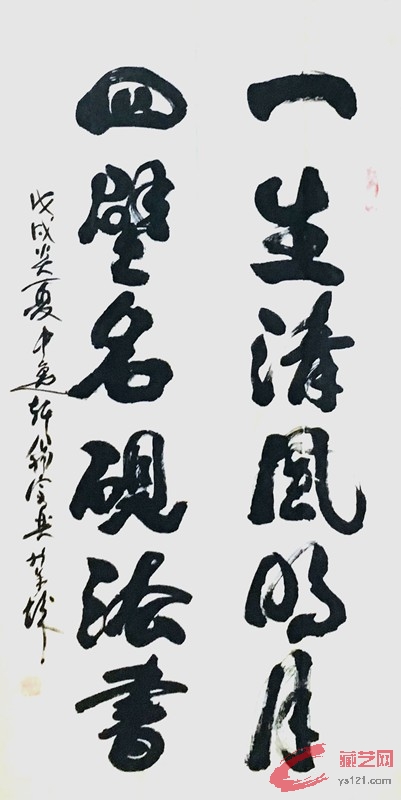 一生清风明月
四壁名砚法书
戊戌炎夏中
藏艺网
ys121.com